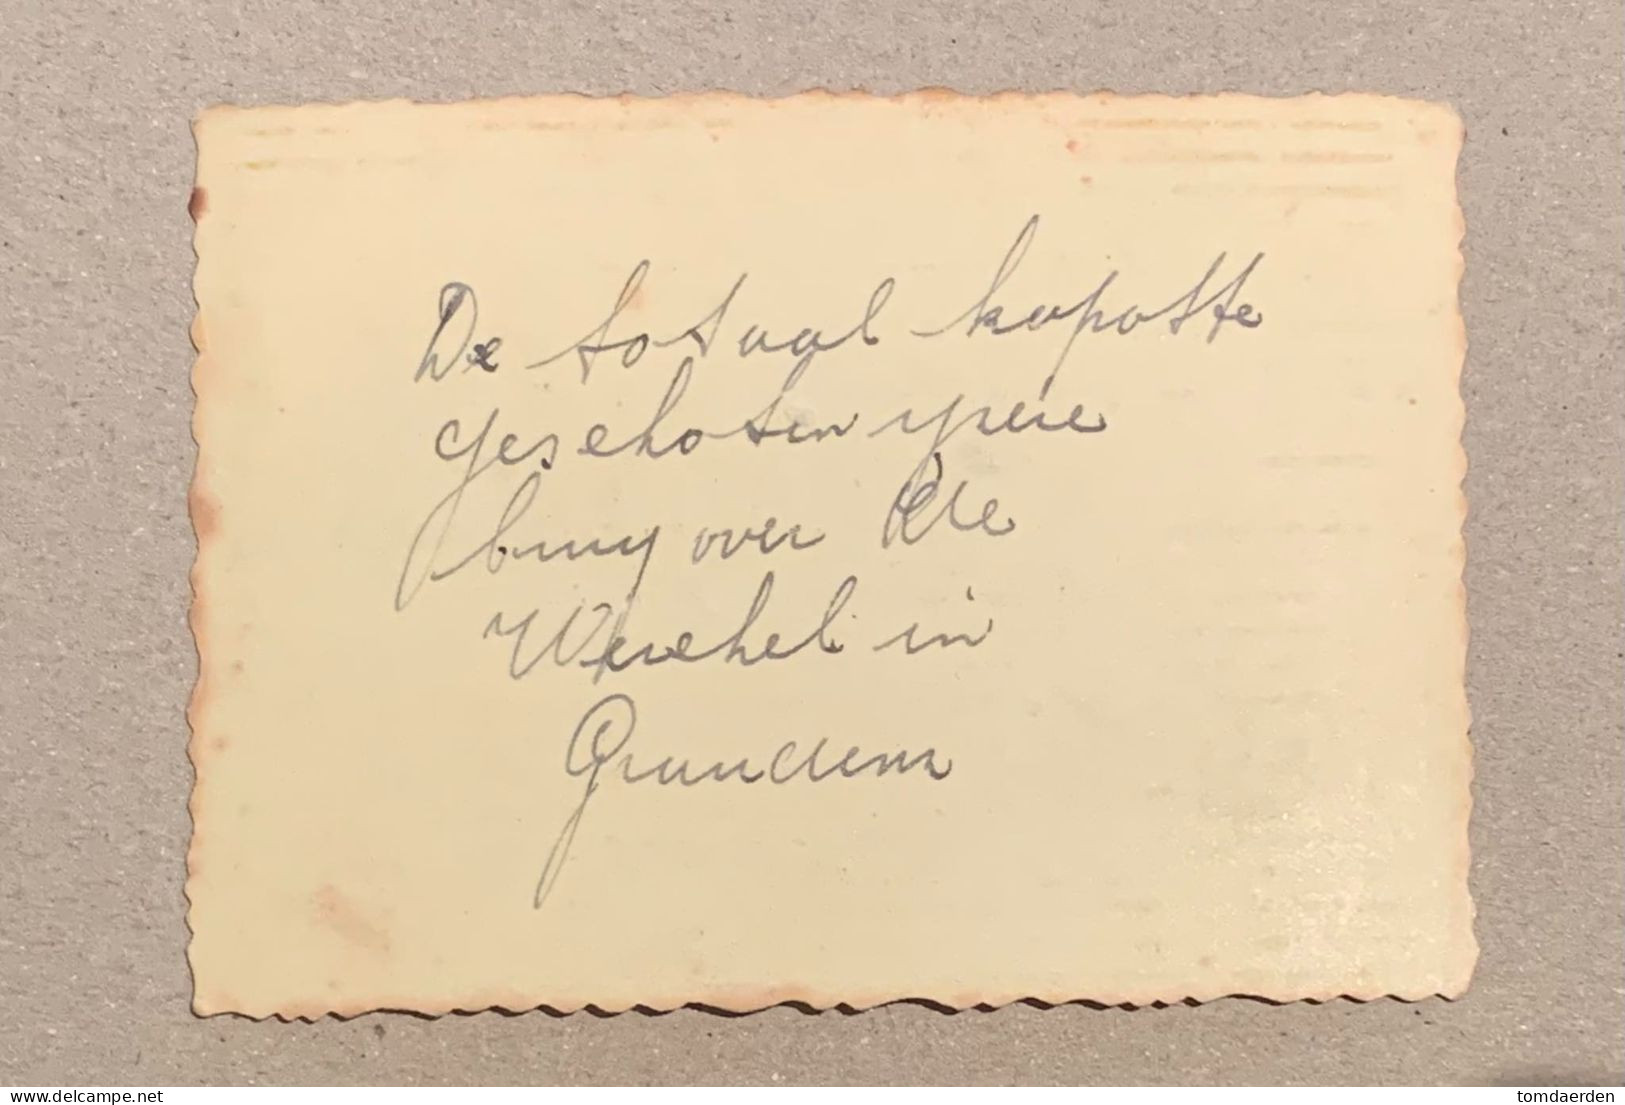 De totaal kapotte
geschoten ijzere
brug over de
Weichel in
Graudenz
delcampe.net
tomdaerden